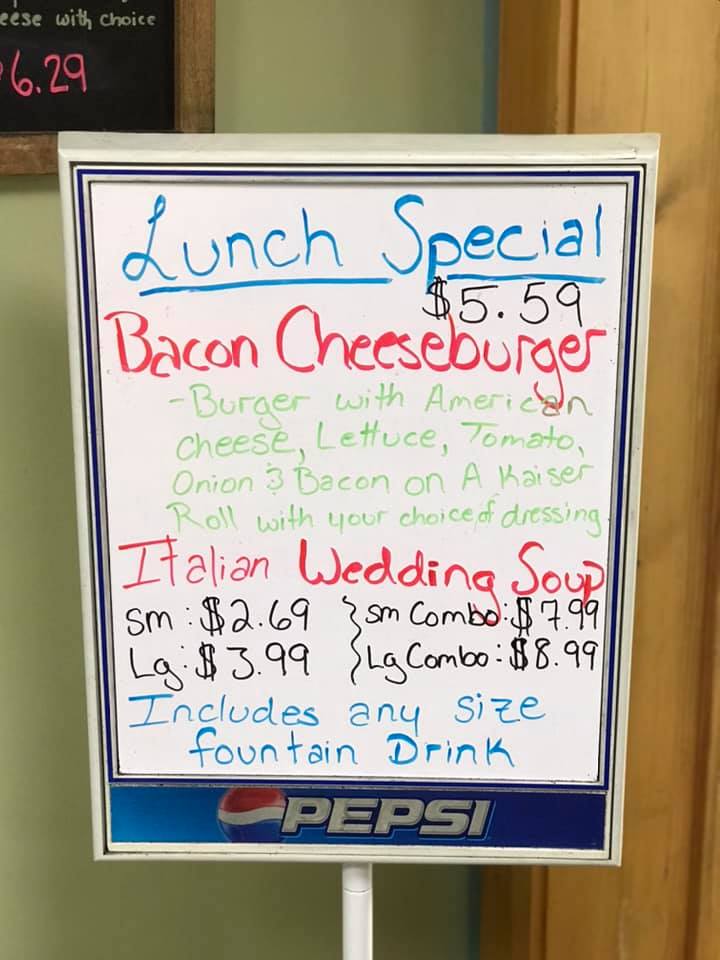 eese with choice
6.29
Lunch Special
$5.59
Bacon Cheeseburger
-Burger with American
cheese, Lettuce, Tomato,
Onion & Bacon on A Kaiser
Roll with your choice of dressing
Italian Wedding Soup
sm: $2.69 } sm Combo: $7.99
Lg: $3.99 } Lg Combo: $8.99
Includes any size
fountain Drink
PEPSI